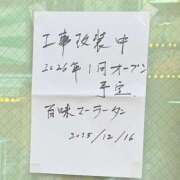 工事改装中
2026年1月オープン
予定
百味マーラータン
2025/12/16